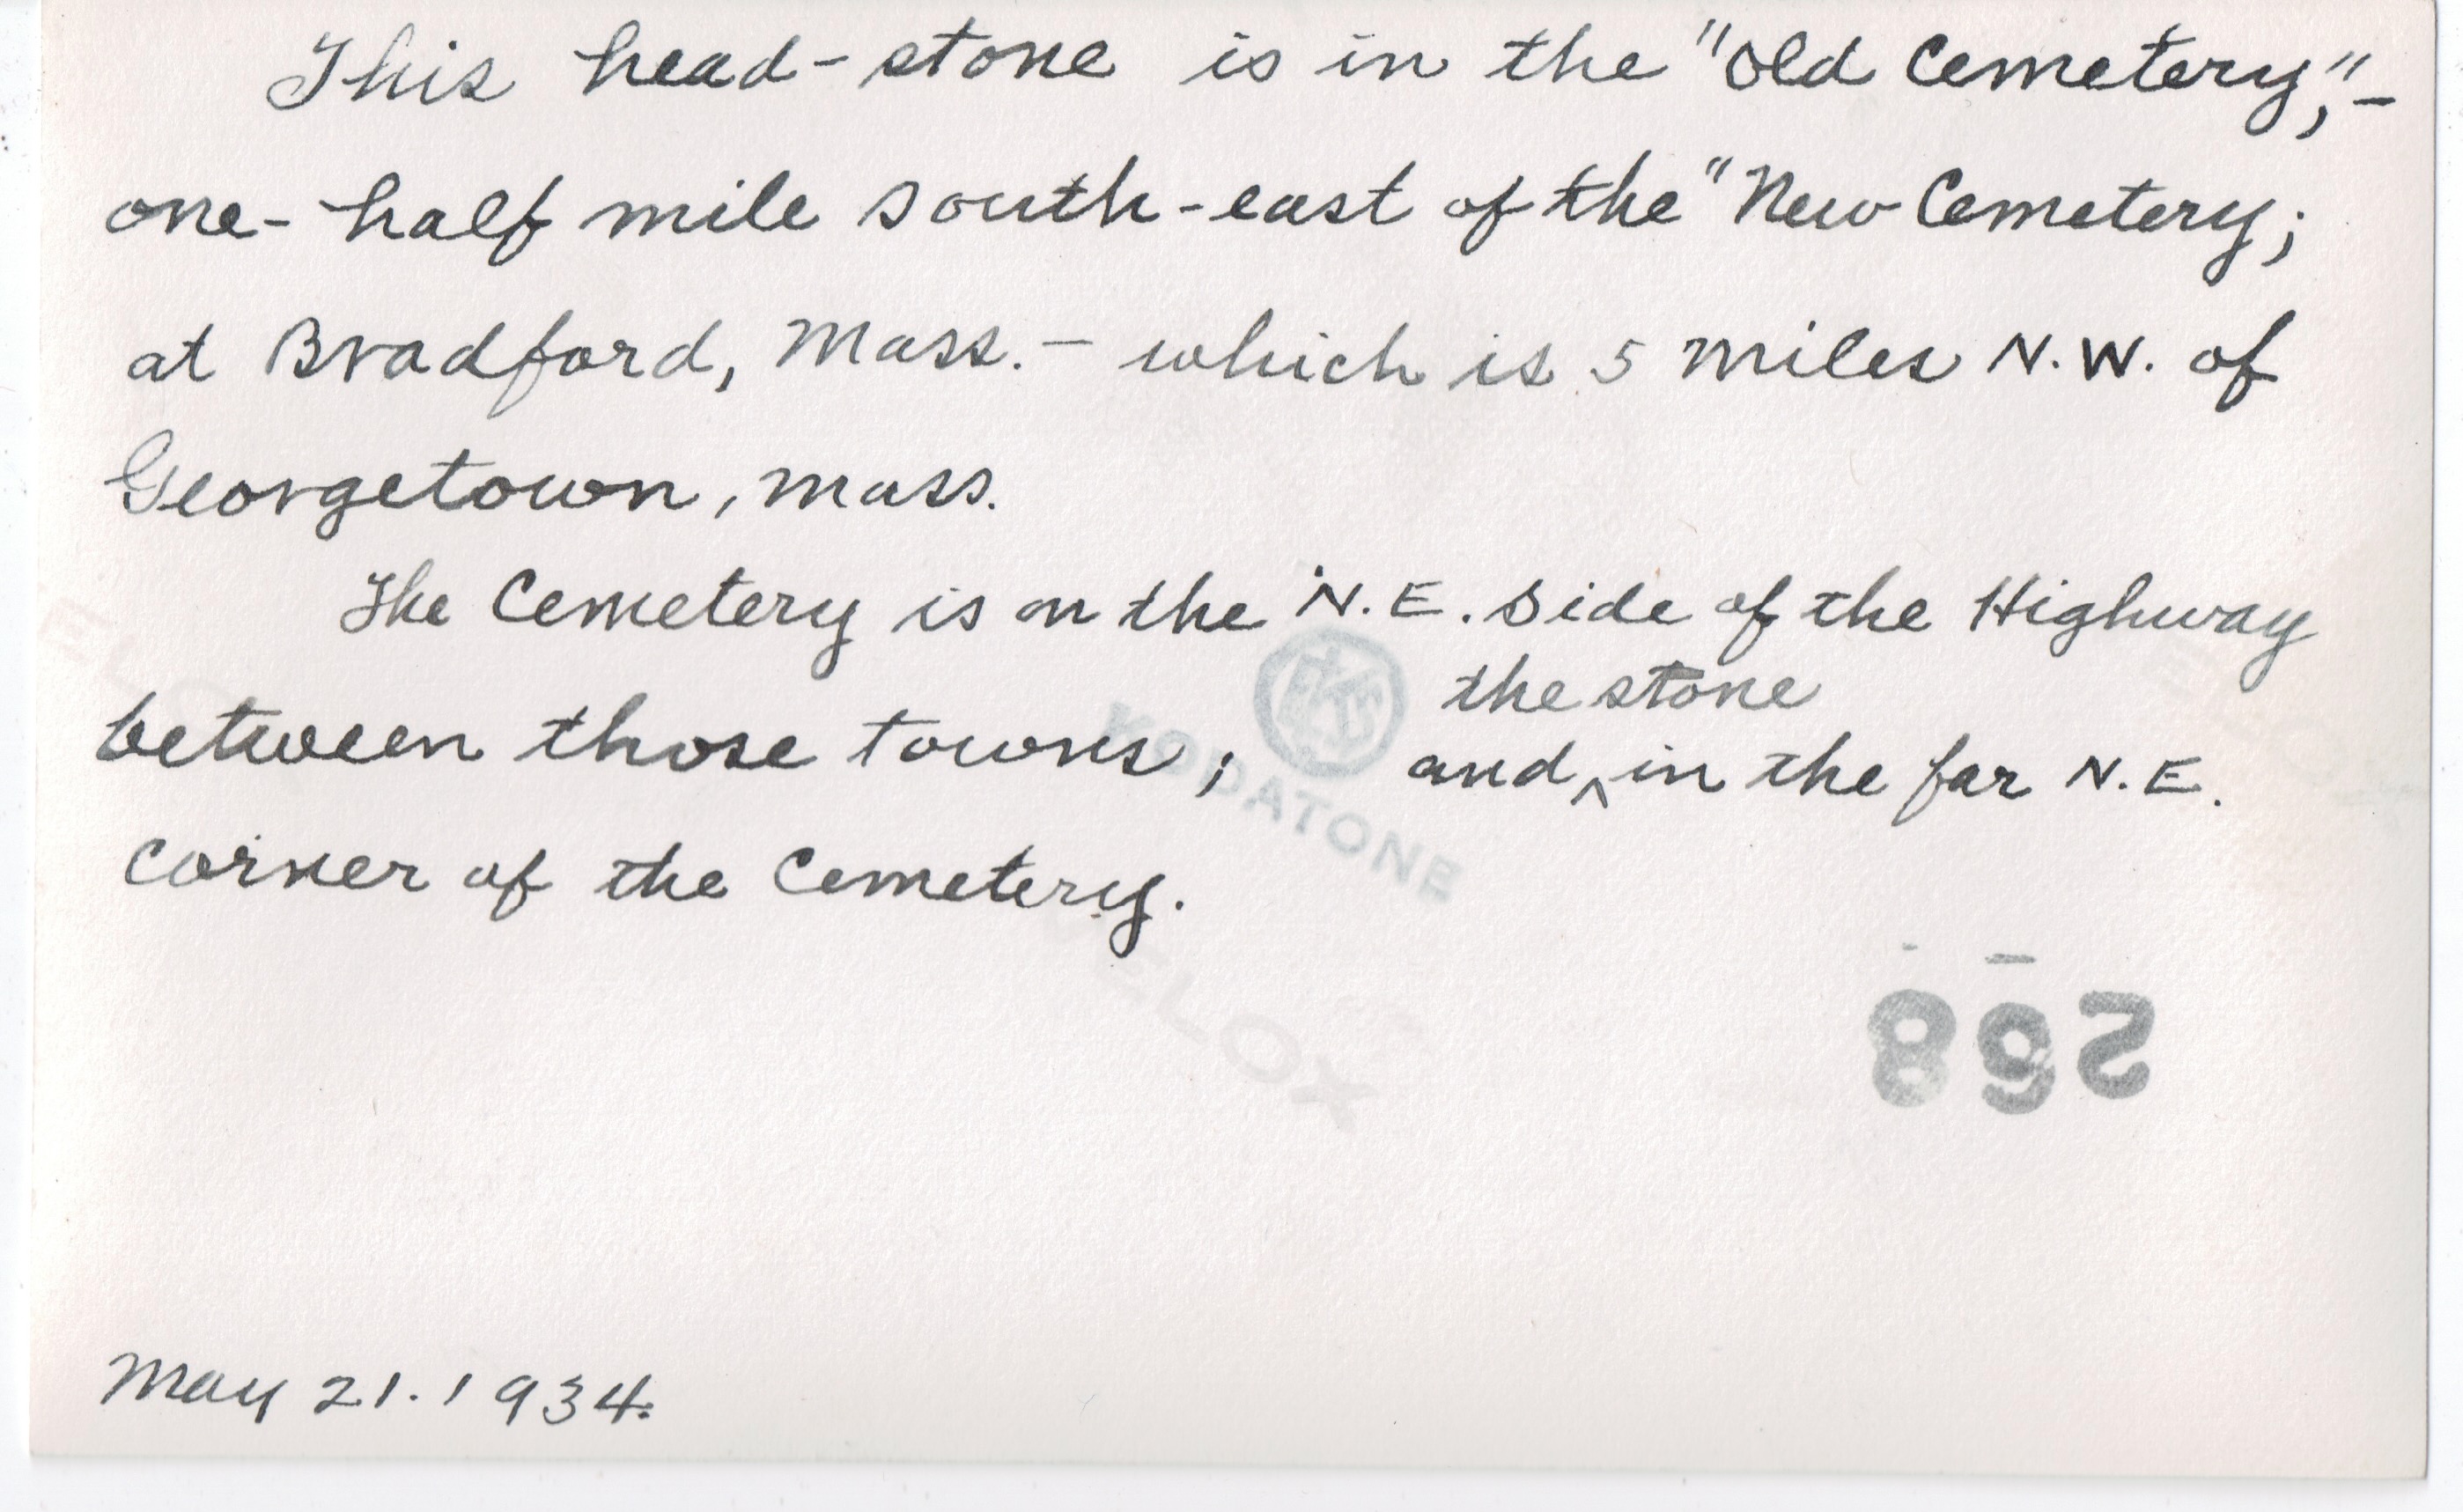 This head-stone is in the "Old Cemetery,"-
one-half mile south-east of the "New Cemetery;
at Bradford, Mass. - which is 5 miles N.W. of
Georgetown, Mass.
The Cemetery is on the N.E. side of the Highway
the stone
between those towns; and ^ in the far N.E.
corner of the Cemetery.
EKC
KODATONE
VELOX
May 21. 1934.